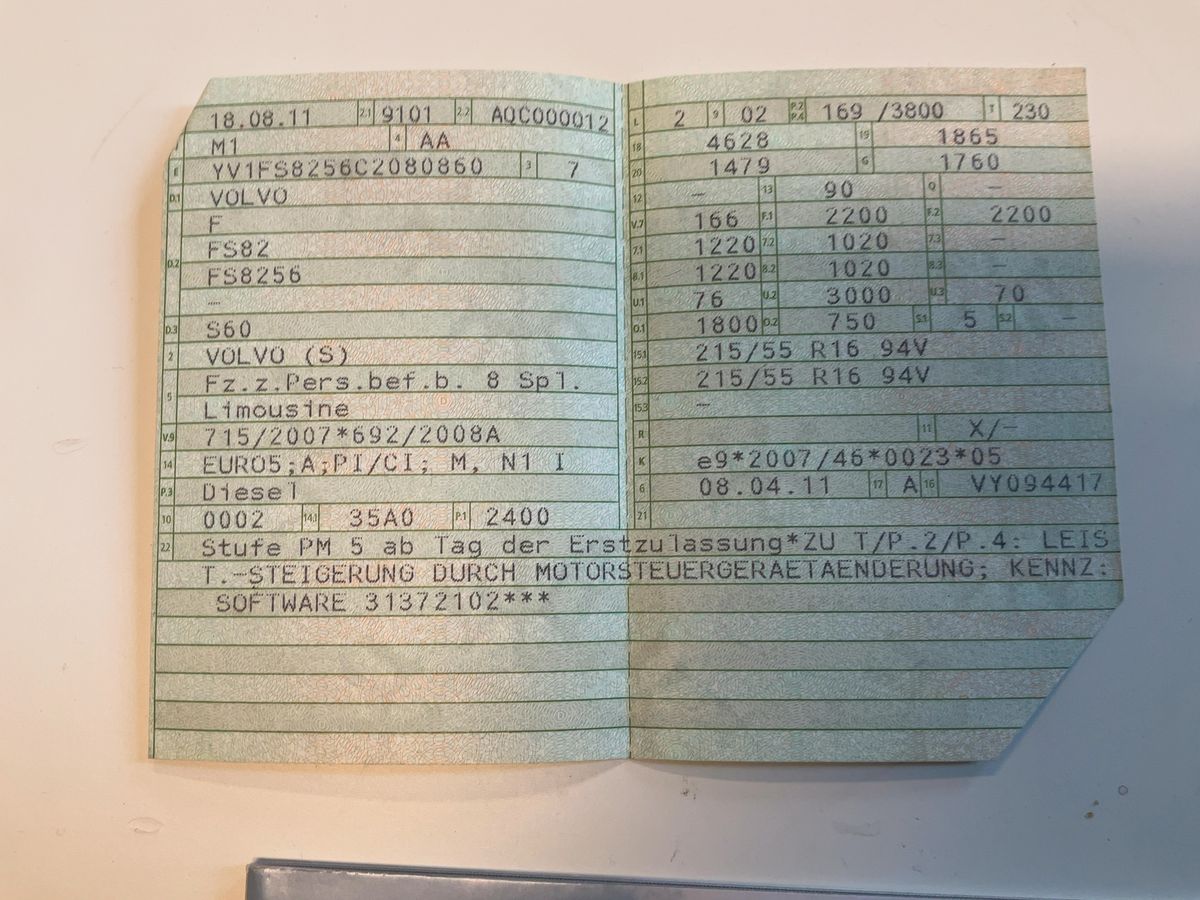 18.08.11 2.1 9101 2.2 AQC000012
M1 4 AA
E YV1FS8256C2080860 3 7
D.1 VOLVO
F
D.2 FS82
FS8256
—
D.3 S60
2 VOLVO (S)
5 Fz.z.Pers.bef.b. 8 Spl.
Limousine
V.9 715/2007*692/2008A
14 EURO5;A;PI/CI; M, N1 I
P.3 Diesel
10 0002 14.1 35A0 P.1 2400
L 2 9 02 P.2 P.4 169 /3800 T 230
18 4628 19 1865
20 1479 G 1760
12 — 13 90 Q —
V.7 166 F.1 2200 F.2 2200
7.1 1220 7.2 1020 7.3 —
8.1 1220 8.2 1020 8.3 —
U.1 76 U.2 3000 U.3 70
O.1 1800 O.2 750 S.1 5 S.2 —
15.1 215/55 R16 94V
15.2 215/55 R16 94V
15.3 —
R 11 X/—
K e9*2007/46*0023*05
6 08.04.11 17 A 16 VY094417
21
22 Stufe PM 5 ab Tag der Erstzulassung*ZU T/P.2/P.4: LEIS
T.-STEIGERUNG DURCH MOTORSTEUERGERAETAENDERUNG; KENNZ:
SOFTWARE 31372102***